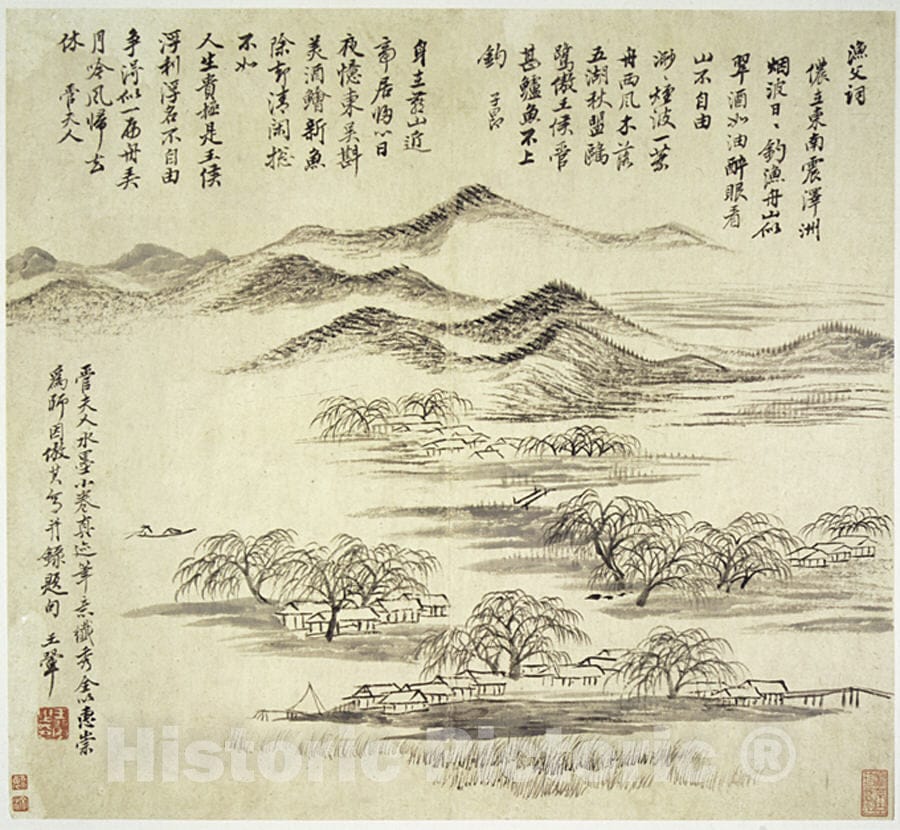 漁父詞
儂在東南震澤洲
烟波日〻釣漁舟山似
翠酒如油醉眼看
山不自由
渺〻煙波一葉
舟西風木落
五湖秋盟鷗
鷺傲王侯管
甚鱸魚不上
鈎 子昂
身在燕山近
帝居歸心日
夜憶東吳斟
美酒鱠新魚
除却清閑總
不如
人生貴極是王侯
浮利浮名不自由
争得似一扁舟弄
月吟風歸去
休 管夫人
管夫人水墨小卷真迹筆意纖秀全以惠崇
爲師因倣其 并錄題句 王翬
Historic Pictoric ®